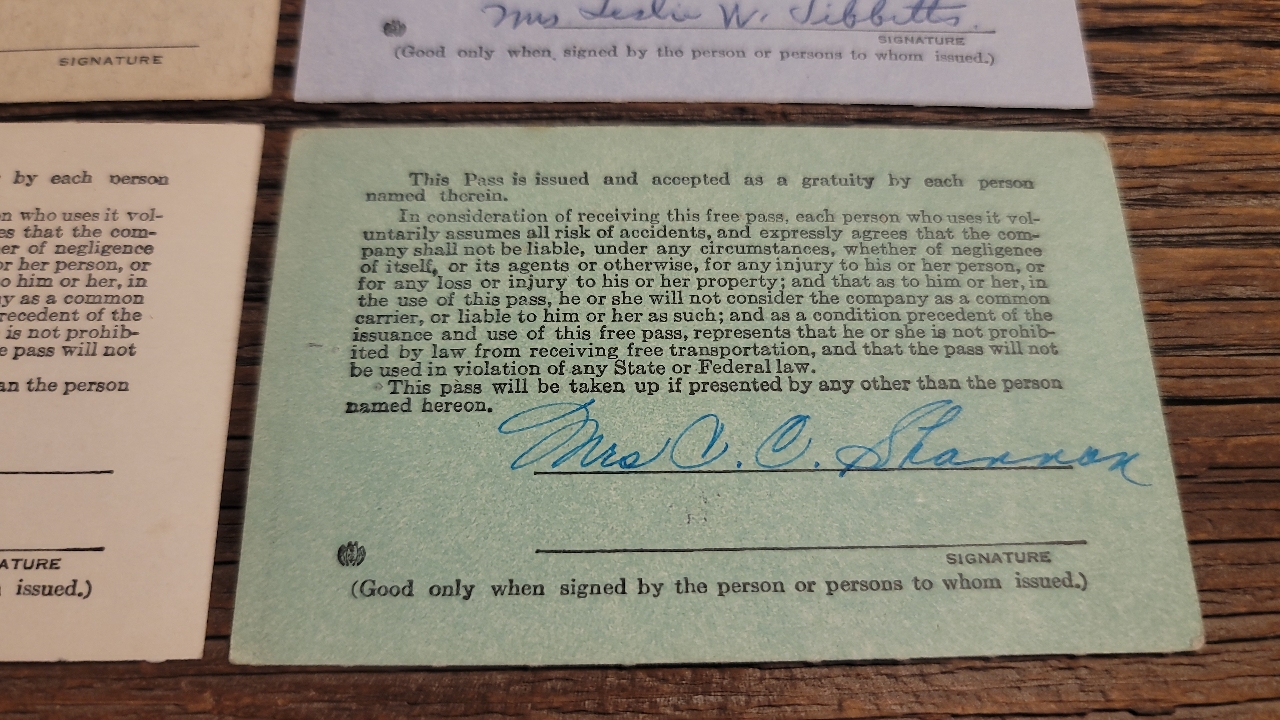 SIGNATURE
Mrs Leslie W. Tibbetts.
SIGNATURE
(Good only when signed by the person or persons to whom issued.)
by each person
n who uses it vol-
es that the com-
er of negligence
or her person, or
o him or her, in
y as a common
recedent of the
is not prohib-
e pass will not
an the person
ATURE
issued.)
This Pass is issued and accepted as a gratuity by each person
named therein.
In consideration of receiving this free pass, each person who uses it vol-
untarily assumes all risk of accidents, and expressly agrees that the com-
pany shall not be liable, under any circumstances, whether of negligence
of itself, or its agents or otherwise, for any injury to his or her person, or
for any loss or injury to his or her property; and that as to him or her, in
the use of this pass, he or she will not consider the company as a common
carrier, or liable to him or her as such; and as a condition precedent of the
issuance and use of this free pass, represents that he or she is not prohib-
ited by law from receiving free transportation, and that the pass will not
be used in violation of any State or Federal law.
This pass will be taken up if presented by any other than the person
named hereon.
Mrs C. C. Shannon
SIGNATURE
(Good only when signed by the person or persons to whom issued.)